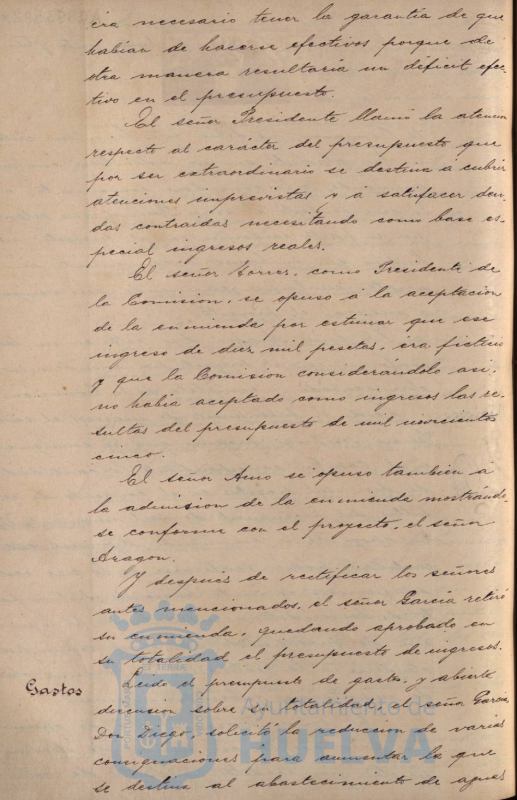 era necesario tener la garantía de que
habian de hacerse efectivos porque de
otra manera resultaría un déficit efec-
tivo en el presupuesto.
El señor Presidente llamó la atención
respecto al carácter del presupuesto que
por ser extraordinario se destina á cubrir
atenciones imprevistas y á satisfacer deu-
das contraidas necesitando como base es-
pecial ingresos reales.
El señor Torres, como Presidente de
la Comision, se opuso á la aceptacion
de la enmienda por estimar que ese
ingreso de diez mil pesetas, era ficticio
y que la Comision considerándolo asi,
no habia aceptado como ingresos las re-
sultas del presupuesto de mil novecientos
cinco.
El señor Amo se opuso tambien á
la admision de la enmienda mostrándo-
se conforme con el proyecto, el señor
Aragon.
Y después de rectificar los señores
antes mencionados, el señor García retiró
su enmienda, quedando aprobado en
su totalidad el presupuesto de ingresos.
Gastos
Leido el presupuesto de gastos, y abierta
discusion sobre su totalidad, el señor García,
Don Diego, solicitó la reduccion de varias
consignaciones para aumentar la que
se destina al abastecimiento de aguas
Ayuntamiento de
HUELVA